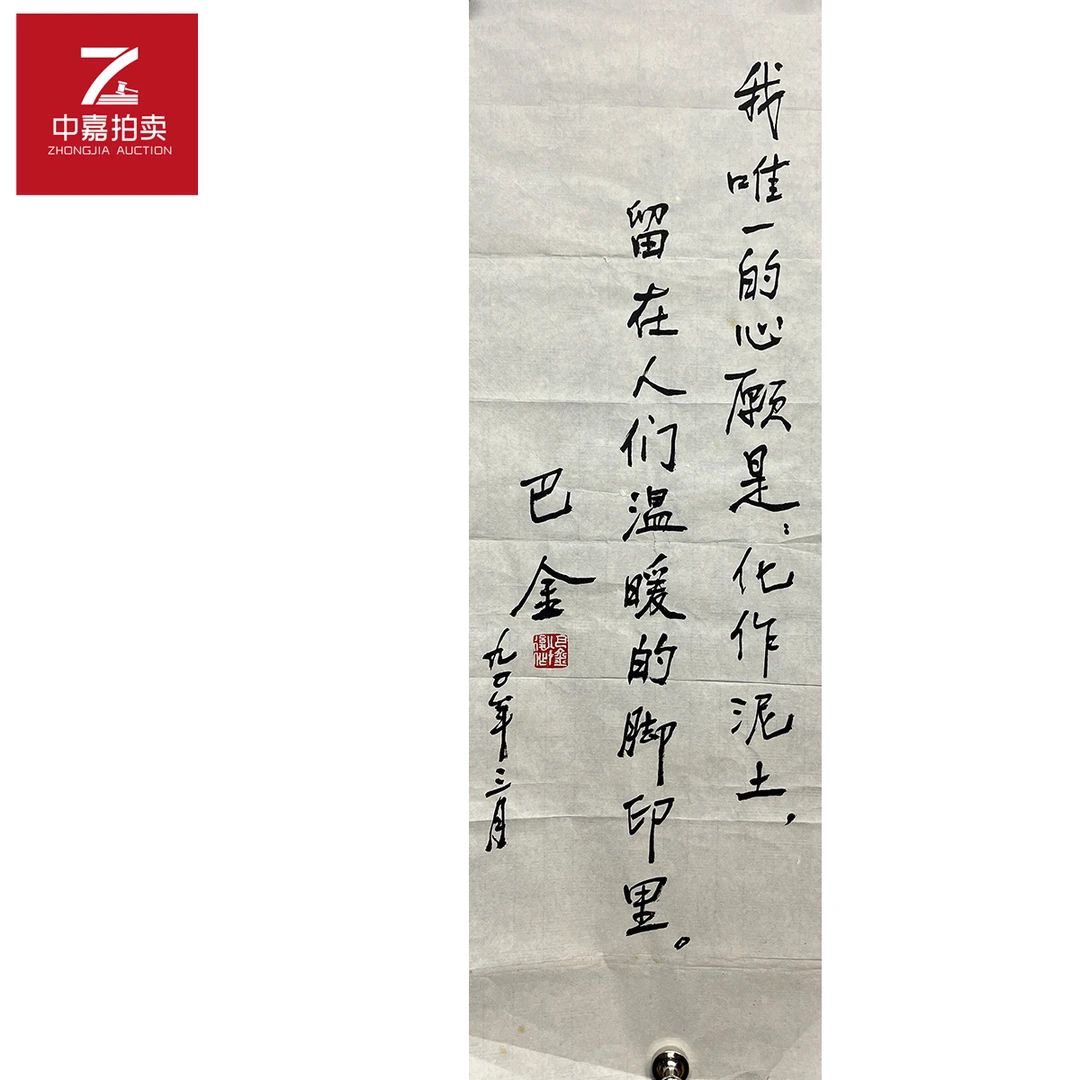 中嘉拍卖
ZHONGJIA AUCTION
我唯一的心愿是：化作泥土，
留在人们温暖的脚印里。
巴金
九〇年三月